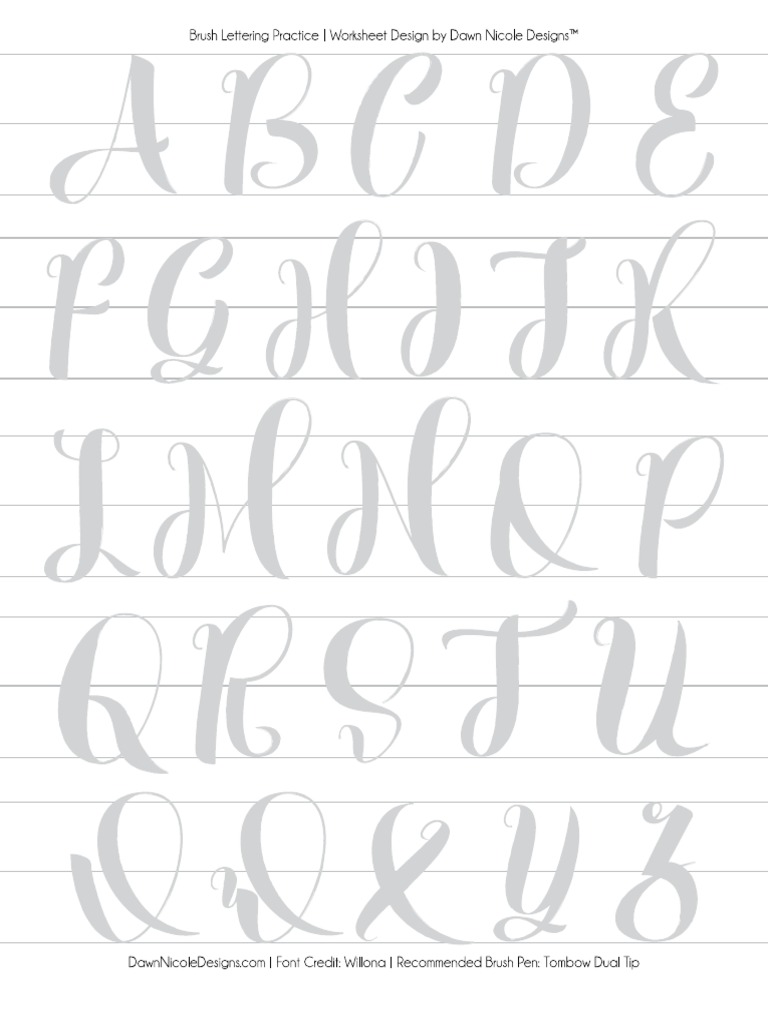 Brush Lettering Practice | Worksheet Design by Dawn Nicole Designs™
A B C D E
F G H I J K
L M N O P
Q R S T U
V W X Y Z
DawnNicoleDesigns.com | Font Credit: Willona | Recommended Brush Pen: Tombow Dual Tip